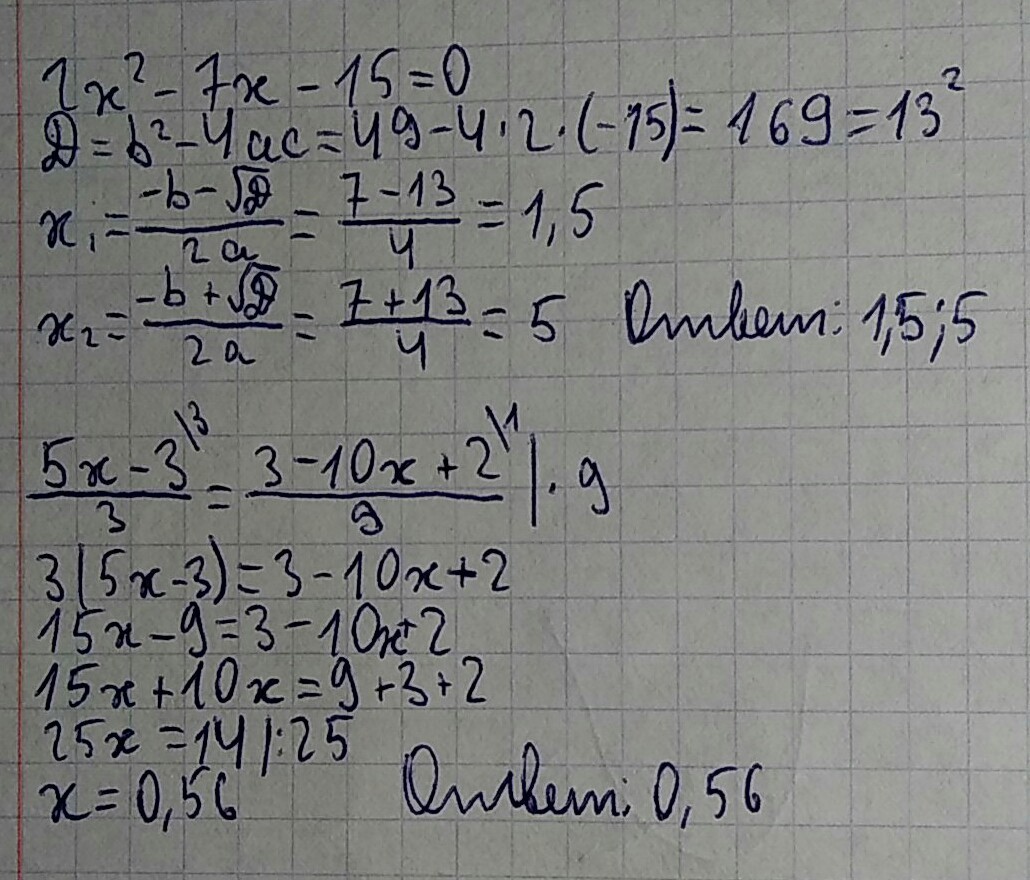 2x² - 7x - 15 = 0
D = b² - 4ac = 49 - 4 · 2 · (-15) = 169 = 13²
x₁ = (-b - √D)/(2a) = (7 - 13)/4 = 1,5
x₂ = (-b + √D)/(2a) = (7 + 13)/4 = 5 Ответ: 1,5; 5
(5x - 3)/3 \3 = (3 - 10x + 2)/9 \1 | · 9
3(5x - 3) = 3 - 10x + 2
15x - 9 = 3 - 10x + 2
15x + 10x = 9 + 3 + 2
25x = 14 |: 25
x = 0,56 Ответ: 0,56